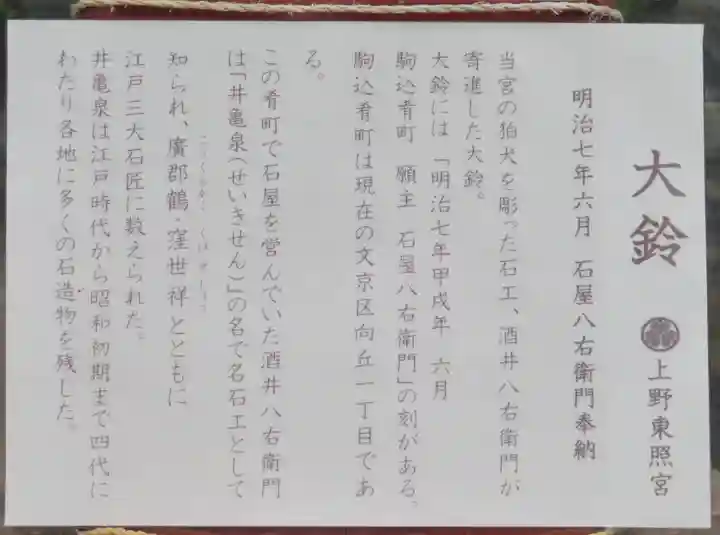 大鈴
上野東照宮
明治七年六月　石屋八右衛門奉納
当宮の狛犬を彫った石工、酒井八右衛門が
寄進した大鈴。
大鈴には「明治七年甲戌年　六月
駒込肴町　願主　石屋八右衛門」の刻がある。
駒込肴町は現在の文京区向丘一丁目であ
る。
この肴町で石屋を営んでいた酒井八右衛門
は「井亀泉（せいきせん）」の名で名石工として
知られ、廣郡鶴・窪世祥とともに
江戸三大石匠に数えられた。
井亀泉は江戸時代から昭和初期まで四代に
わたり各地に多くの石造物を残した。